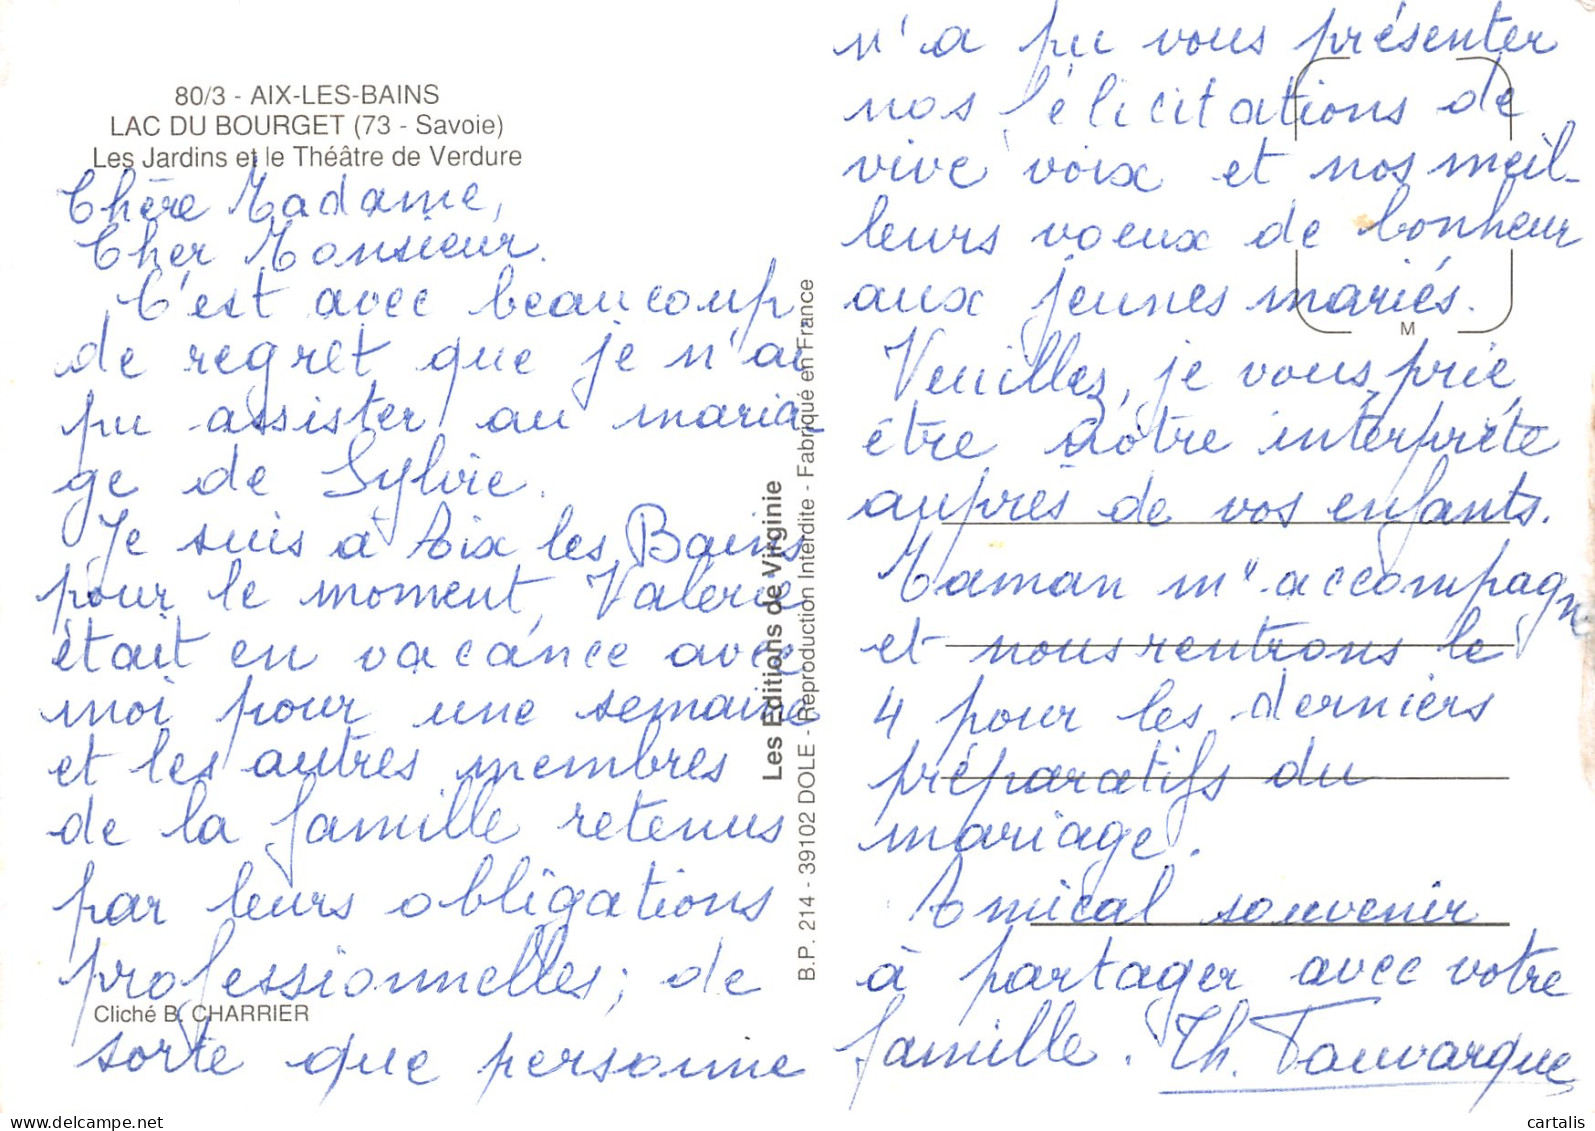 80/3 - AIX-LES-BAINS
LAC DU BOURGET (73 - Savoie)
Les Jardins et le Théâtre de Verdure
Chère Madame,
Cher Monsieur.
C'est avec beaucoup
de regret que je n'ai
pu assister au maria-
ge de Sylvie.
Je suis à Aix les Bains
pour le moment, Valérie
était en vacance avec
moi pour une semaine
et les autres membres
de la famille retenus
par leurs obligations
professionnelles ; de
Cliché B. CHARRIER
sorte que personne
Les Editions de Virginie
B.P. 214 - 39102 DOLE - Reproduction Interdite - Fabriqué en France
n'a pu vous présenter
nos félicitations de
vive voix et nos meil-
leurs voeux de bonheur
aux jeunes mariés.
M
Veuillez, je vous prie,
être nôtre interprète
auprès de vos enfants.
Maman m'accompagne
et nous rentrons le
4 pour les derniers
préparatifs du
mariage.
Amical souvenir
à partager avec votre
famille. Th. Tauvarque
cartalis